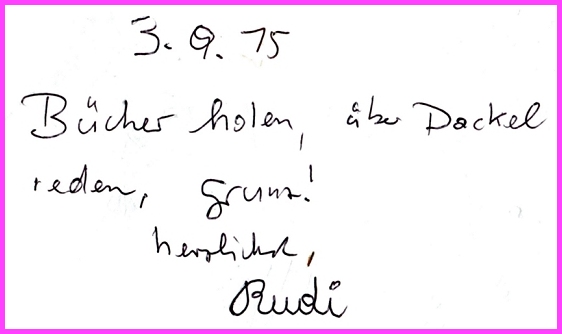 3. 9. 15
Bücher holen, über Dackel
reden, grunz!
herzlichst,
Rudi